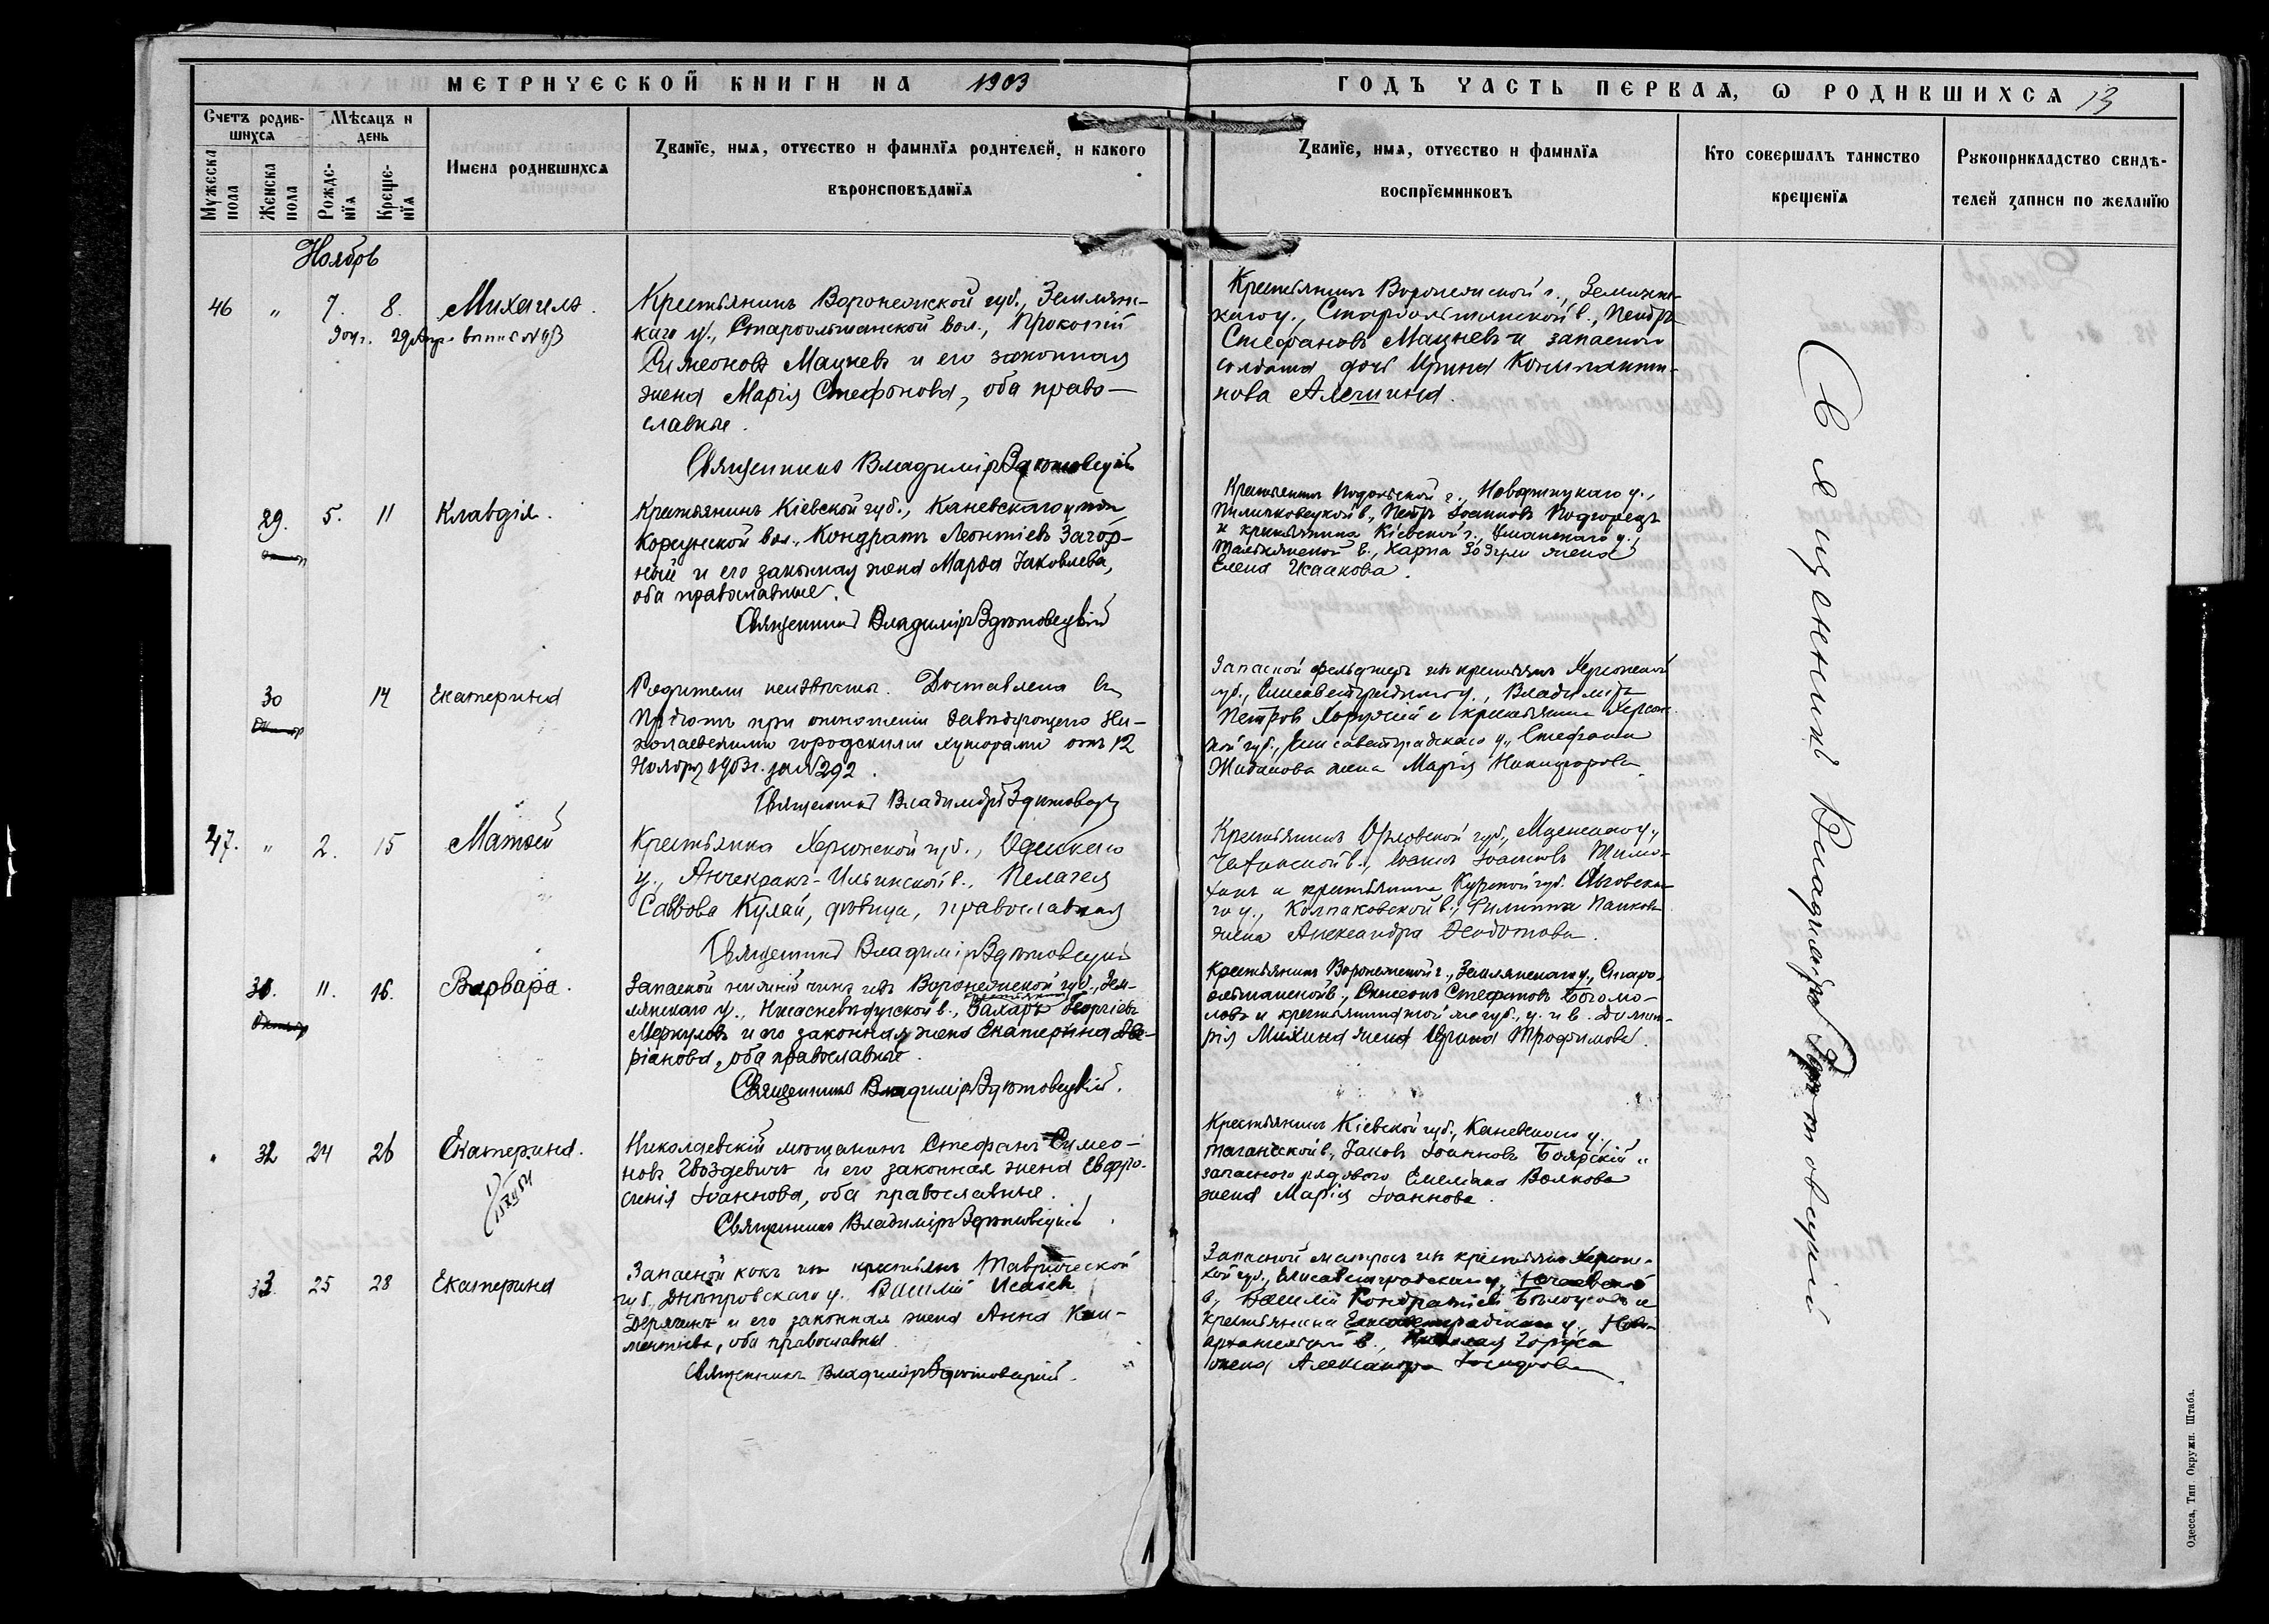 МЕТРИЧЕСКОЙ КНИГИ НА 1903
ГОДЪ ЧАСТЬ ПЕРВАЯ, Ѡ РОДИВШИХСЯ 13
Счетъ родив-
шихся
Мѣсяцъ и
день
Мужеска
пола
Женска
пола
Рожде-
нїя
Креще-
нїя
Имена родившихся
Званїе, имя, отчество и фамилїя родителей, и какого
вѣроисповѣданїя
Званїе, имя, отчество и фамилїя
воспрїемниковъ
Кто совершалъ таинство
крещенїя
Рукоприкладство свидѣ-
телей записи по желанїю
Ноябрь
46 " 7. 8. Михаилъ.
Крестьянинъ Воронежской губ., Землян-
каго у., Староольшанской вол., Прокопій
Симеоновъ Мацневъ и его законная
жена Марія Стефонова, оба право-
славные.
Священникъ Владиміръ Здѣтовецкій
Крестьянинъ Воронежской г., Землянс-
каго у., Староольшанской в., Петръ
Стефановъ Мацневъ и запасного
солдата дочь Ирина Константи-
нова Алешина.
29. 5. 11 Клавдія.
Крестьянинъ Кіевской губ., Каневскаго уѣзда,
Корсунской вол., Кондратъ Леонтіевъ Загор-
ный и его законная жена Марѳа Іаковлева,
оба православные.
Священникъ Владиміръ Здѣтовецкій
Крестьянинъ Подольской г., Новоушицкаго у.,
Петръ Іоанновъ Подгорецъ
и крестьянина Кіевской г., Уманскаго у.,
в., Харпа Зозули жена
Елена Исаакова.
30 14 Екатерина
Родители неизвѣстны. Доставлена въ
Пріютъ при отношеніи завѣдующаго Ни-
колаевскими городскими хуторами отъ 12
Ноября 1903 г. за № 292.
Священникъ Владиміръ Здѣтовецкій
Запасной фельдшеръ изъ крестьянъ Херсонской
губ., Елисаветградскаго у., Владиміръ
Петровъ Хоружій и крестьянина Херсон-
ской губ., Елисаветградскаго у., Стефана
Жиданова жена Марія Никифорова
47. " 2. 15 Матѳей
Крестьянка Херсонской губ., Одесскаго
у., Анчекракъ-Ильинской в., Пелагея
Саввова Кулай, дѣвица, православная
Священникъ Владиміръ Здѣтовецкій
Крестьянинъ Орловской губ., Мценскаго у.,
в., Іоаннъ Іоанновъ Тимо-
и крестьянина Курской губ. Льговска-
го у., Колпаковской в., Филиппа Панкова
жена Александра Ѳеодотова.
31. 11. 16. Варвара.
Запасной нижній чинъ изъ Воронежской губ., Зем-
лянскаго у., в., Захаръ Георгіевъ
Меркуловъ и его законная жена Екатерина Аве-
ріанова, оба православные.
Священникъ Владиміръ Здѣтовецкій.
Крестьянинъ Воронежской г., Землянскаго у., Старо-
ольшанской в., Симеонъ Стефановъ Богомо-
ловъ и крестьянина той же губ., у. и в. Димит-
рія Михина жена Ирина Трофимова.
32 24 26 Екатерина.
Николаевскій мѣщанинъ Стефанъ Симео-
новъ Гвоздевичъ и его законная жена Евфро-
синія Іоаннова, оба православные.
Священникъ Владиміръ Здѣтовецкій
Крестьянинъ Кіевской губ., Каневскаго у.,
Таганской в., Іаковъ Іоанновъ Боярскій и
запасного рядового Емеліана Волкова
жена Марія Іоаннова.
33. 25 28 Екатерина
Запасной кокъ изъ крестьянъ Таврической
губ., Днѣпровскаго у. Василій Исаіевъ
Дерягинъ и его законная жена Анна Кли-
ментьева, оба православные
Священникъ Владиміръ Здѣтовецкій.
Запасной матросъ изъ крестьянъ Херсон-
ской губ., Елисаветградскаго у.,
в., Василій Кондратіевъ Бѣлоусовъ и
крестьянина Елисаветградскаго у., Ново-
архангельской в., Николая Горуса
жена Александра
Священникъ Владиміръ Здѣтовецкій
Одесса, Тип. Окружн. Штаба.